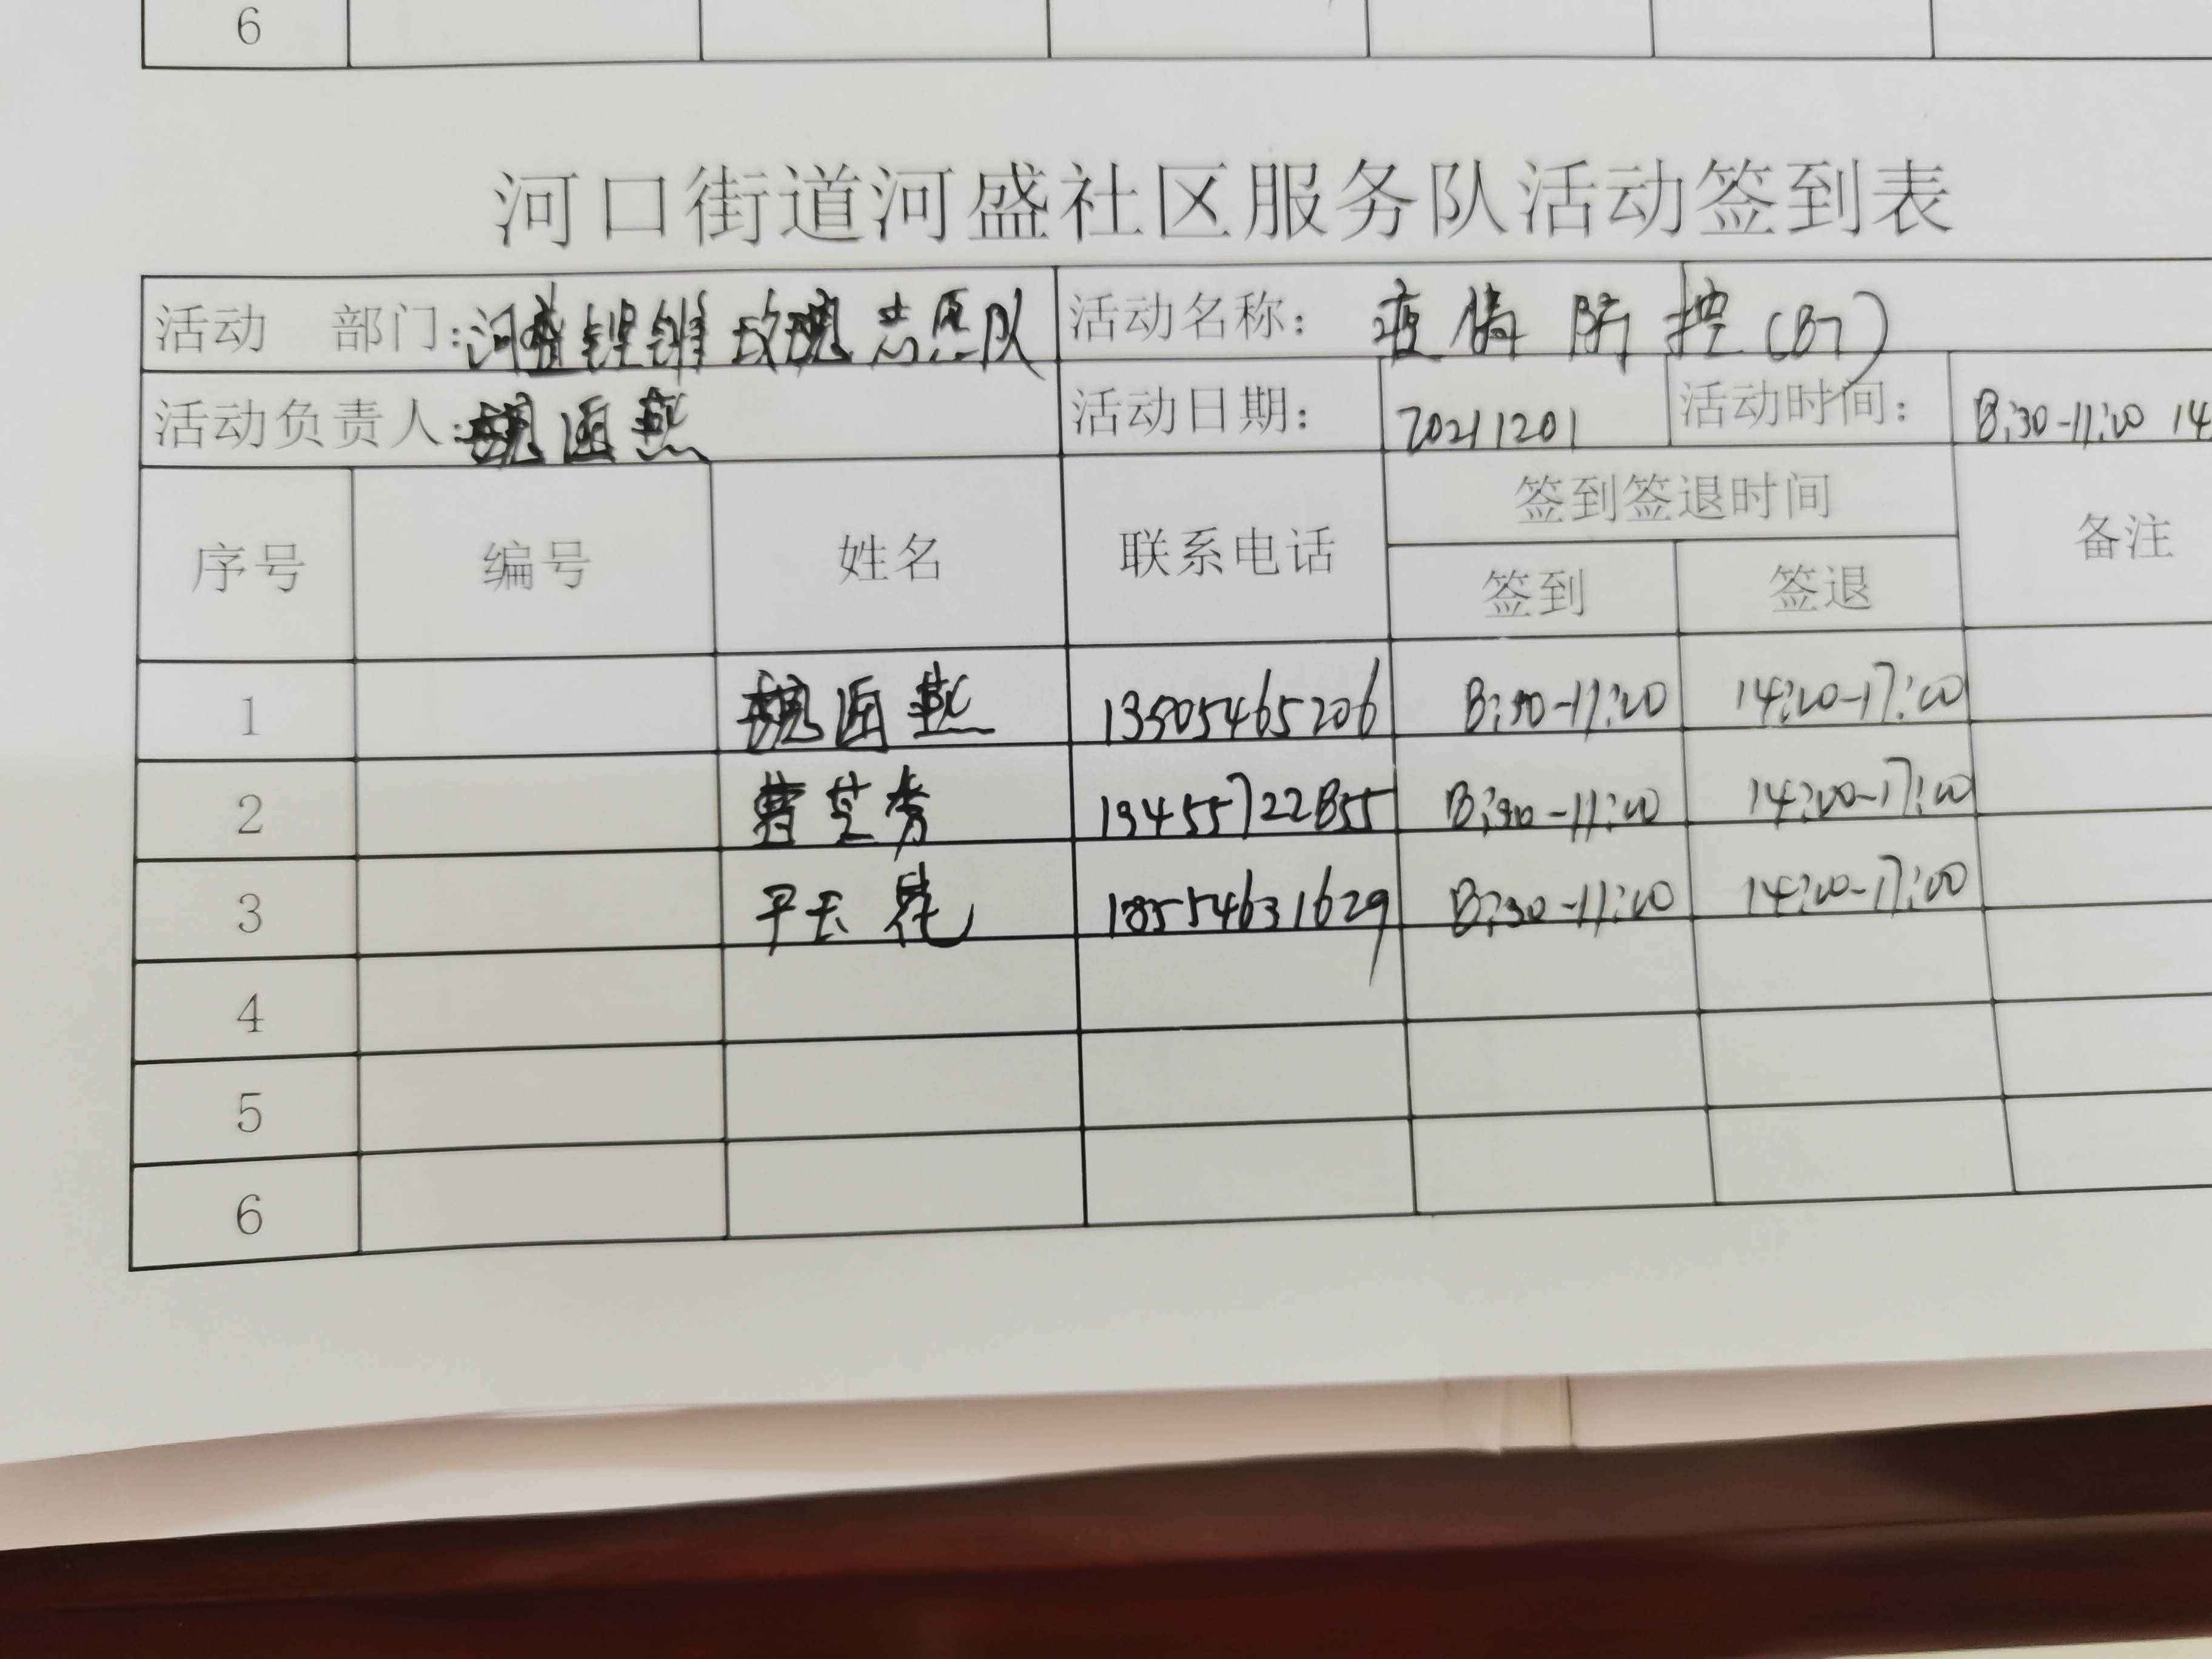 6
河口街道河盛社区服务队活动签到表
活动 部门:河盛铿锵玫瑰志愿队 活动名称: 疫情防控(87)
活动负责人:魏函燕 活动日期: 20211201 活动时间: 8:30-11:00 14
序号 编号 姓名 联系电话 签到签退时间 备注
签到 签退
1 魏函燕 13505465206 8:30-11:00 14:00-17:00
2 曹芝秀 13455722855 8:30-11:00 14:00-17:00
3 平玉花 18554631629 8:30-11:00 14:00-17:00
4
5
6